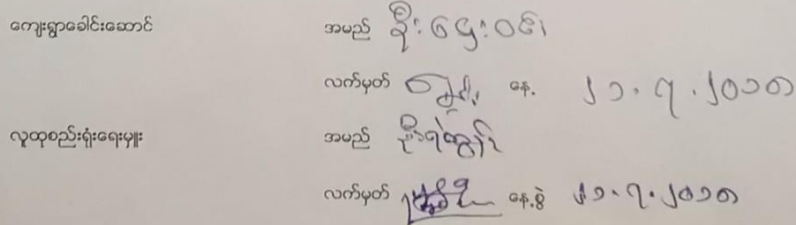 ကျေးရွာခေါင်းဆောင် အမည် ဦးဌေးဝင်း
လက်မှတ် နေ့ ၂၁.၇.၂၀၁၈
လူထုစည်းရုံးရေးမှူး အမည်
လက်မှတ် နေ့စွဲ ၂၁.၇.၂၀၁၈